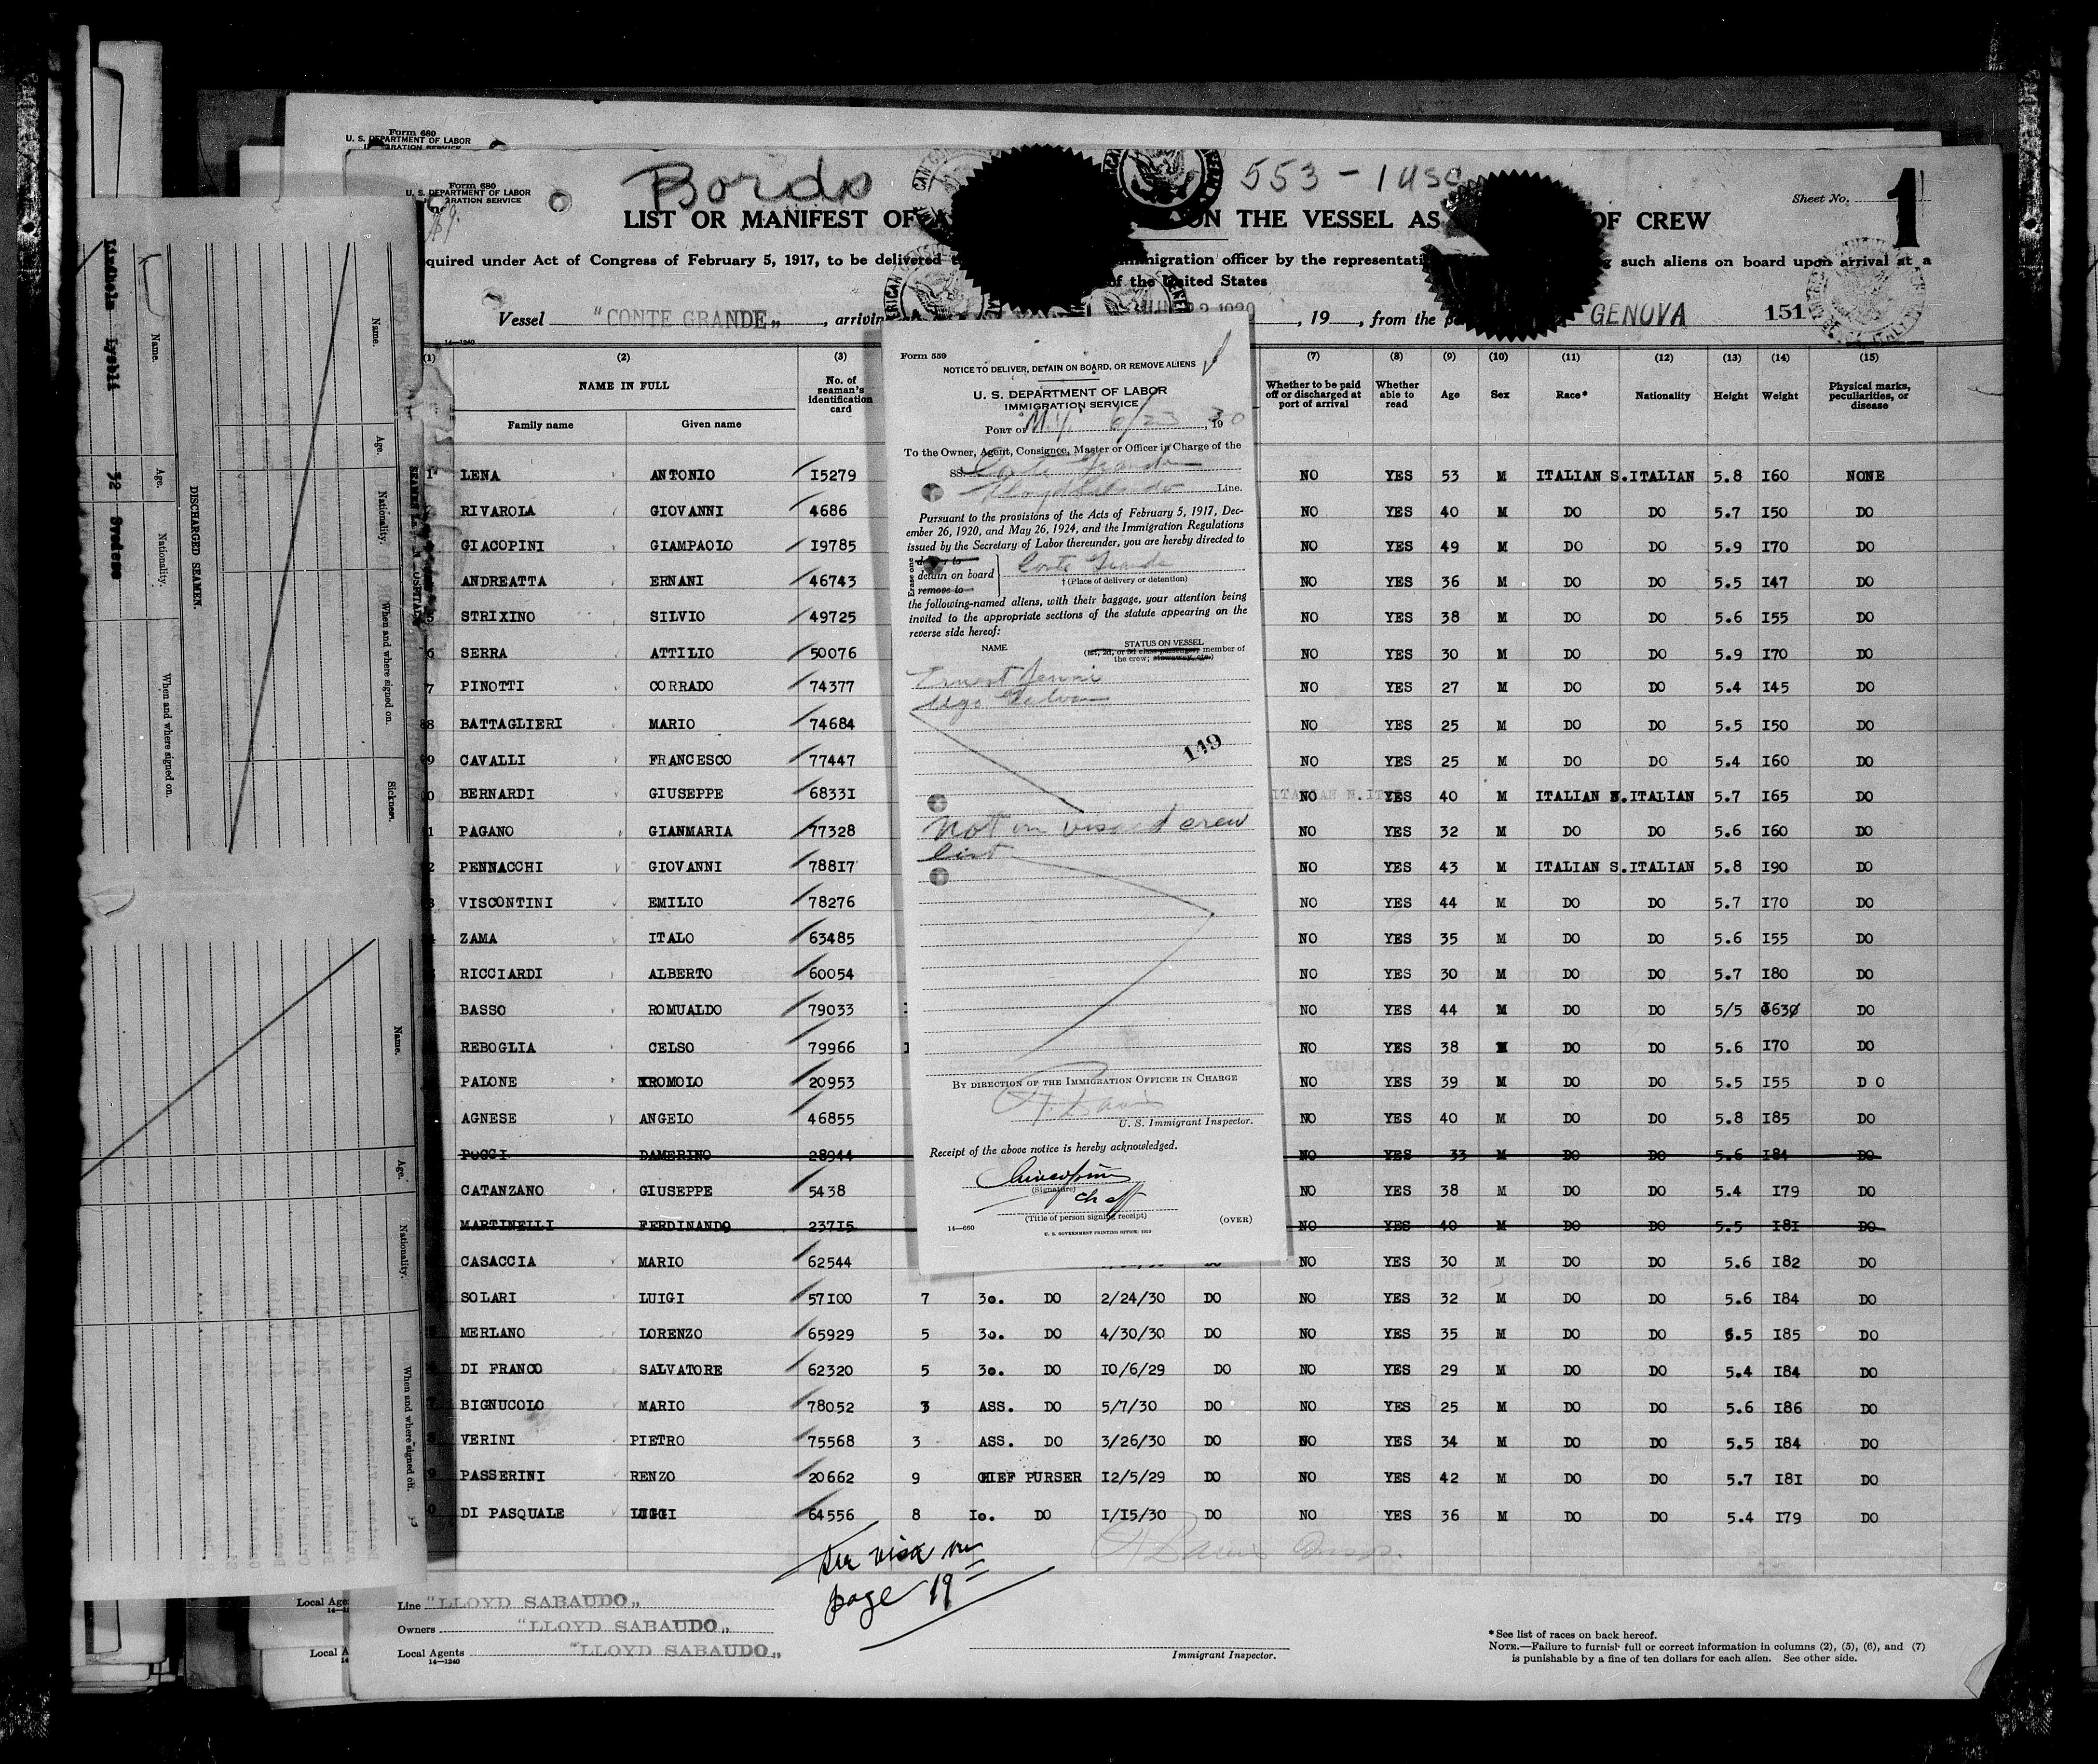 Form 680
U. S. DEPARTMENT OF LABOR
Form 680
U. S. DEPARTMENT OF LABOR
IMMIGRATION SERVICE
Bordo
553 -
Sheet No. 1
LIST OR MANIFEST OF ON THE VESSEL AS OF CREW
quired under Act of Congress of February 5, 1917, to be delivered immigration officer by the representati such aliens on board upon arrival at a
of the United States
Vessel "CONTE GRANDE", arrivin , 19 , from the p GENOVA 151
14—1240
(1) (2) (3) (7) (8) (9) (10) (11) (12) (13) (14) (15)
NAME IN FULL
Family name Given name
No. of seaman's identification card
Whether to be paid off or discharged at port of arrival
Whether able to read
Age Sex Race* Nationality Height Weight
Physical marks, peculiarities, or disease
1 LENA ANTONIO I5279 NO YES 53 M ITALIAN S.ITALIAN 5.8 I60 NONE
RIVAROLA GIOVANNI 4686 NO YES 40 M DO DO 5.7 I50 DO
GIACOPINI GIAMPAOLO I9785 NO YES 49 M DO DO 5.9 I70 DO
ANDREATTA ERNANI 46743 NO YES 36 M DO DO 5.5 I47 DO
5 STRIXINO SILVIO 49725 NO YES 38 M DO DO 5.6 I55 DO
6 SERRA ATTILIO 50076 NO YES 30 M DO DO 5.9 I70 DO
7 PINOTTI CORRADO 74377 NO YES 27 M DO DO 5.4 I45 DO
8 BATTAGLIERI MARIO 74684 NO YES 25 M DO DO 5.5 I50 DO
9 CAVALLI FRANCESCO 77447 NO YES 25 M DO DO 5.4 I60 DO
0 BERNARDI GIUSEPPE 6833I NO YES 40 M ITALIAN N.ITALIAN 5.7 I65 DO
1 PAGANO GIANMARIA 77328 NO YES 32 M DO DO 5.6 I60 DO
2 PENNACCHI GIOVANNI 788I7 NO YES 43 M ITALIAN S.ITALIAN 5.8 I90 DO
3 VISCONTINI EMILIO 78276 NO YES 44 M DO DO 5.7 I70 DO
4 ZAMA ITALO 63485 NO YES 35 M DO DO 5.6 I55 DO
RICCIARDI ALBERTO 60054 NO YES 30 M DO DO 5.7 I80 DO
BASSO ROMUALDO 79033 NO YES 44 M DO DO 5/5 DO
REBOGLIA CELSO 79966 NO YES 38 M DO DO 5.6 I70 DO
PALONE ROMOLO 20953 NO YES 39 M DO DO 5.5 I55 D O
AGNESE ANGELO 46855 NO YES 40 M DO DO 5.8 I85 DO
POGGI DAMERINO 28944 NO YES 33 M DO DO 5.6 I84 DO
CATANZANO GIUSEPPE 5438 NO YES 38 M DO DO 5.4 I79 DO
MARTINELLI FERDINANDO 237I5 NO YES 40 M DO DO 5.5 I8I DO
CASACCIA MARIO 62544 NO YES 30 M DO DO 5.6 I82 DO
SOLARI LUIGI 57I00 7 3o. DO 2/24/30 DO NO YES 32 M DO DO 5.6 I84 DO
MERLANO LORENZO 65929 5 3o. DO 4/30/30 DO NO YES 35 M DO DO 5.5 I85 DO
DI FRANCO SALVATORE 62320 5 3o. DO IO/6/29 DO NO YES 29 M DO DO 5.4 I84 DO
7 BIGNUCOLO MARIO 78052 3 ASS. DO 5/7/30 DO NO YES 25 M DO DO 5.6 I86 DO
8 VERINI PIETRO 75568 3 ASS. DO 3/26/30 DO NO YES 34 M DO DO 5.5 I84 DO
9 PASSERINI RENZO 20662 9 CHIEF PURSER I2/5/29 DO NO YES 42 M DO DO 5.7 I8I DO
0 DI PASQUALE LUIGI 64556 8 Io. DO I/I5/30 DO NO YES 36 M DO DO 5.4 I79 DO
See visa on
page 19
Line "LLOYD SABAUDO"
Owners "LLOYD SABAUDO"
Local Agents "LLOYD SABAUDO"
14—1240
Immigrant Inspector.
*See list of races on back hereof.
NOTE.—Failure to furnish full or correct information in columns (2), (5), (6), and (7)
is punishable by a fine of ten dollars for each alien. See other side.
Form 559
NOTICE TO DELIVER, DETAIN ON BOARD, OR REMOVE ALIENS
U. S. DEPARTMENT OF LABOR
IMMIGRATION SERVICE
PORT OF N.Y. 6/23, 1930
To the Owner, Agent, Consignee, Master or Officer in Charge of the
SS. Conte Grande
Lloyd Sabaudo Line.
Pursuant to the provisions of the Acts of February 5, 1917, Dec-
ember 26, 1920, and May 26, 1924, and the Immigration Regulations
issued by the Secretary of Labor thereunder, you are hereby directed to
Erase one
deliver to
detain on board
remove to
Conte Grande
† (Place of delivery or detention)
the following-named aliens, with their baggage, your attention being
invited to the appropriate sections of the statute appearing on the
reverse side hereof:
NAME
STATUS ON VESSEL
(1st, 2d, or 3d class passenger, member of
the crew, stowaway, etc.)
Ernest
Ugo
149
Not on visaed crew
list
BY DIRECTION OF THE IMMIGRATION OFFICER IN CHARGE
U. S. Immigrant Inspector.
Receipt of the above notice is hereby acknowledged.
(Signature)
(Title of person signing receipt)
14—660
(OVER)
U. S. GOVERNMENT PRINTING OFFICE: 1929
DISCHARGED SEAMEN.
Name. Age. Nationality. When and where signed on.
32 Svedese
Name. Age. Nationality. When and where signed on. Sickness.
Name. Age. Nationality. When and where signed on.
Local Age
Local A